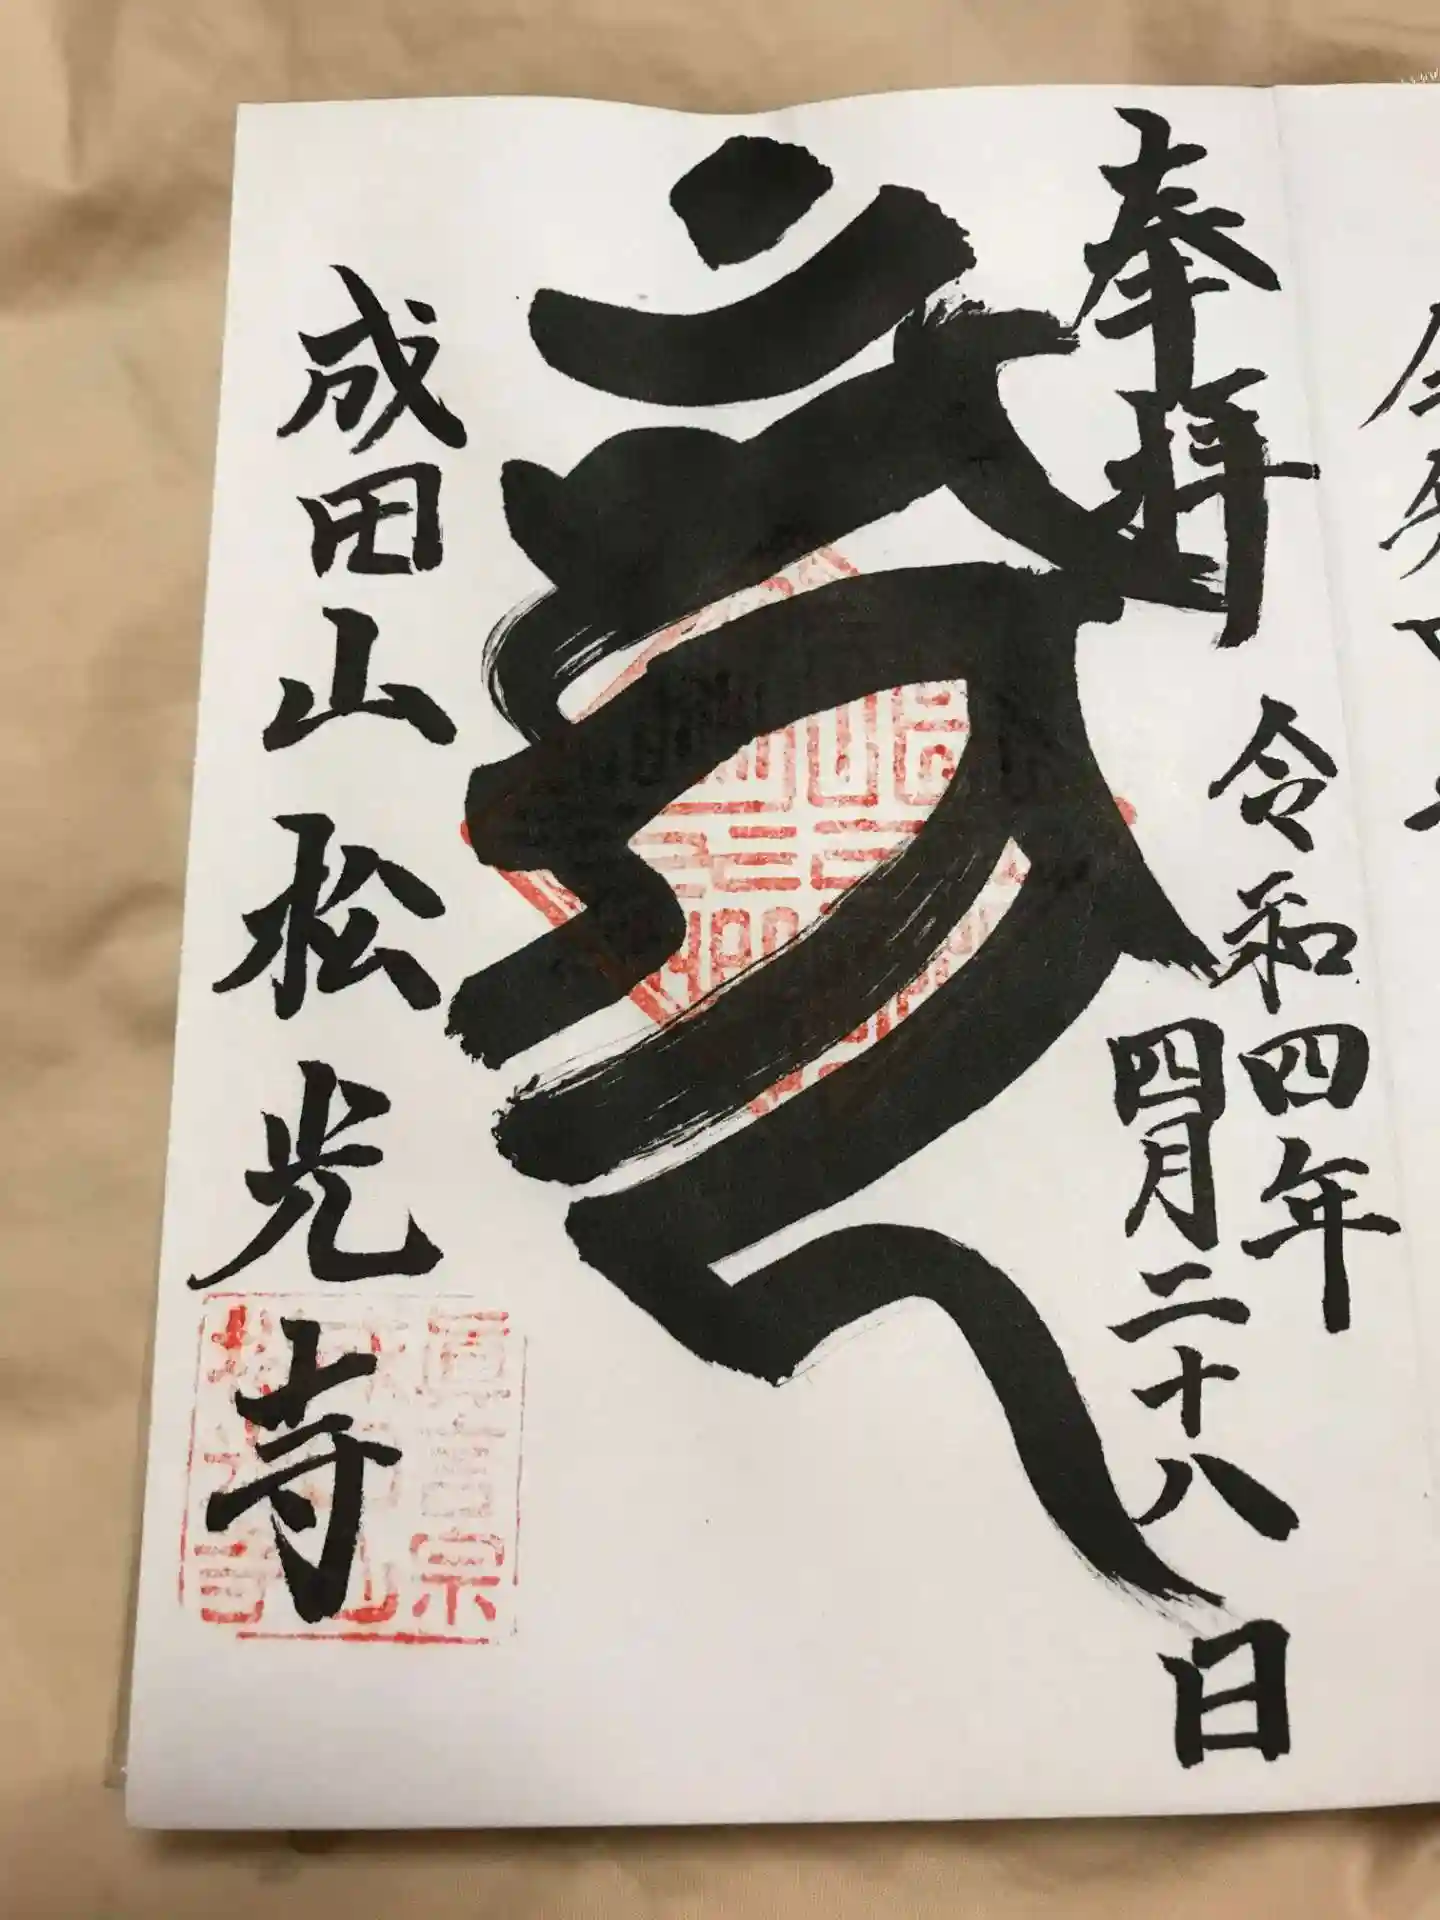 奉拝
令和四年
四月二十八日
成田山松光寺
眞言宗
成田山
松光寺